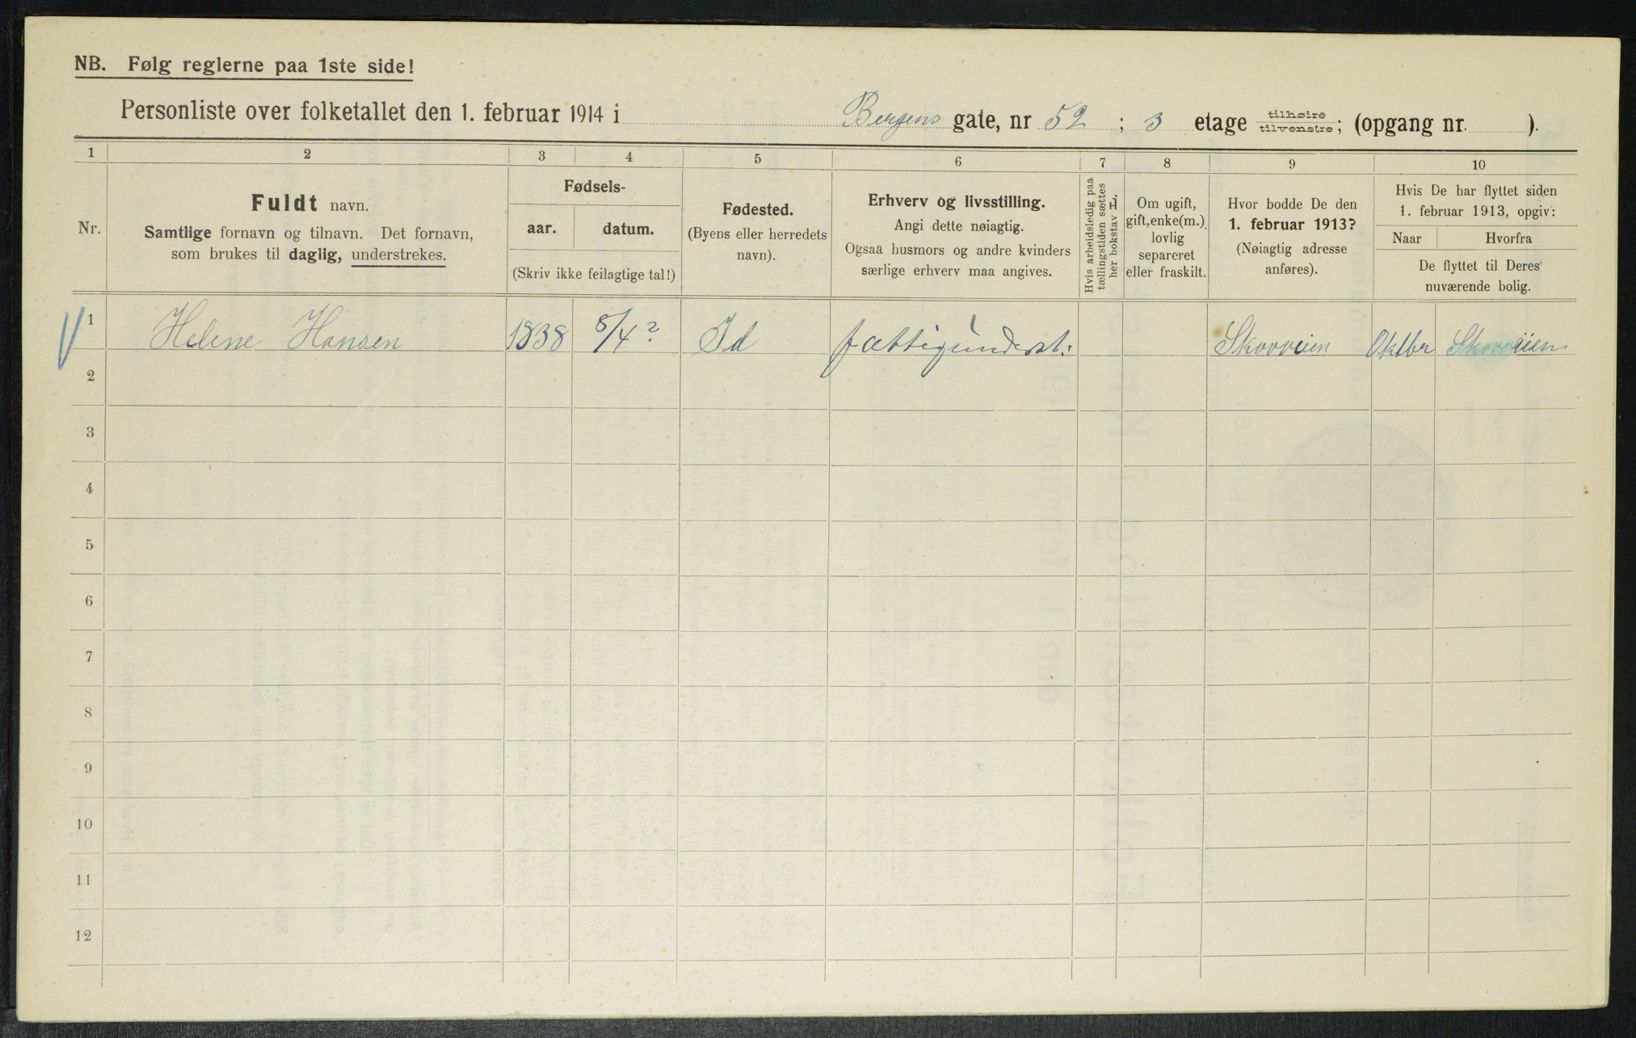 NB. Følg reglerne paa 1ste side!
Personliste over folketallet den 1. februar 1914 i Bergens gate, nr 52 ; 3 etage tilhøire tilvenstre; (opgang nr. ).
1 2 3 4 5 6 7 8 9 10
Nr.
Fuldt navn.
Samtlige fornavn og tilnavn. Det fornavn,
som brukes til daglig, understrekes.
Fødsels-
aar. datum.
(Skriv ikke feilagtige tal!)
Fødested.
(Byens eller herredets
navn).
Erhverv og livsstilling.
Angi dette nøiagtig.
Ogsaa husmors og andre kvinders
særlige erhverv maa angives.
Hvis arbeidsledig paa
tællingstiden sættes
her bokstav L.
Om ugift,
gift, enke(m.),
lovlig
separeret
eller fraskilt.
Hvor bodde De den
1. februar 1913?
(Nøiagtig adresse
anføres).
Hvis De har flyttet siden
1. februar 1913, opgiv:
Naar Hvorfra
De flyttet til Deres
nuværende bolig.
1 Helene Hansen 1838 8/4? Id fattigunderst: Skovveien Oktbr Skovveien
2
3
4
5
6
7
8
9
10
11
12